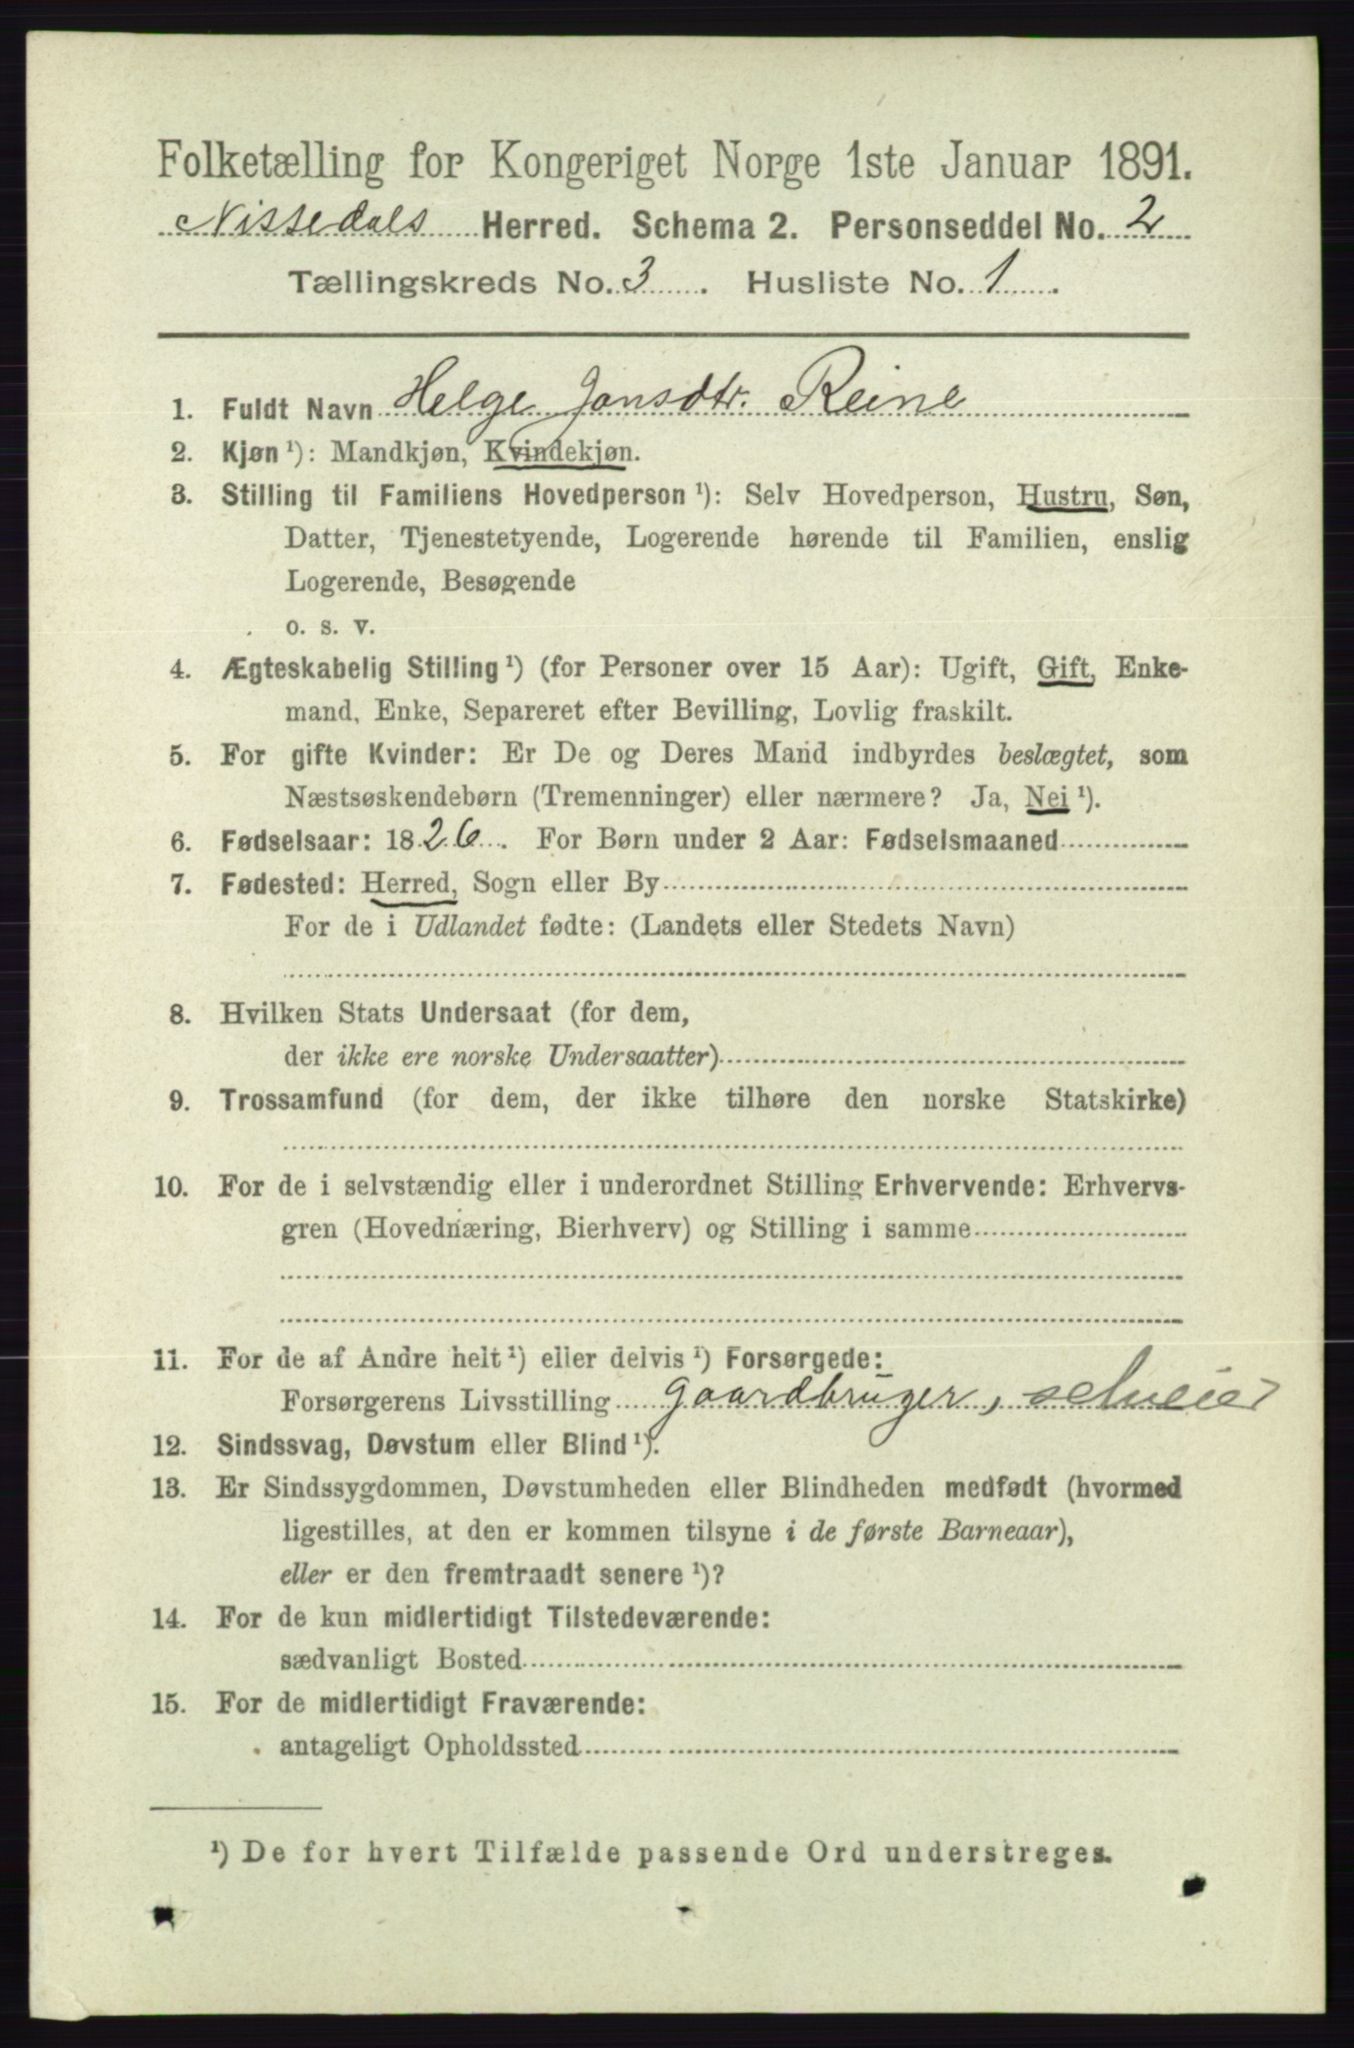 Folketælling for Kongeriget Norge 1ste Januar 1891.
Nissedals Herred. Schema 2. Personseddel No. 2
Tællingskreds No. 3. Husliste No. 1.
1. Fuldt Navn Helge Jonsdtr. Reine
2. Kjøn ¹): Mandkjøn, Kvindekjøn.
3. Stilling til Familiens Hovedperson ¹): Selv Hovedperson, Hustru, Søn,
Datter, Tjenestetyende, Logerende hørende til Familien, enslig
Logerende, Besøgende
o. s. v.
4. Ægteskabelig Stilling ¹) (for Personer over 15 Aar): Ugift, Gift, Enke-
mand, Enke, Separeret efter Bevilling, Lovlig fraskilt.
5. For gifte Kvinder: Er De og Deres Mand indbyrdes beslægtet, som
Næstsøskendebørn (Tremenninger) eller nærmere? Ja, Nei ¹).
6. Fødselsaar: 1826. For Børn under 2 Aar: Fødselsmaaned
7. Fødested: Herred, Sogn eller By
For de i Udlandet fødte: (Landets eller Stedets Navn)
8. Hvilken Stats Undersaat (for dem,
der ikke ere norske Undersaatter)
9. Trossamfund (for dem, der ikke tilhøre den norske Statskirke)
10. For de i selvstændig eller i underordnet Stilling Erhvervende: Erhvervs-
gren (Hovednæring, Bierhverv) og Stilling i samme
11. For de af Andre helt ¹) eller delvis ¹) Forsørgede:
Forsørgerens Livsstilling gaardbruger, selveier
12. Sindssvag, Døvstum eller Blind ¹).
13. Er Sindssygdommen, Døvstumheden eller Blindheden medfødt (hvormed
ligestilles, at den er kommen tilsyne i de første Barneaar),
eller er den fremtraadt senere ¹)?
14. For de kun midlertidigt Tilstedeværende:
sædvanligt Bosted
15. For de midlertidigt Fraværende:
antageligt Opholdssted
¹) De for hvert Tilfælde passende Ord understreges.